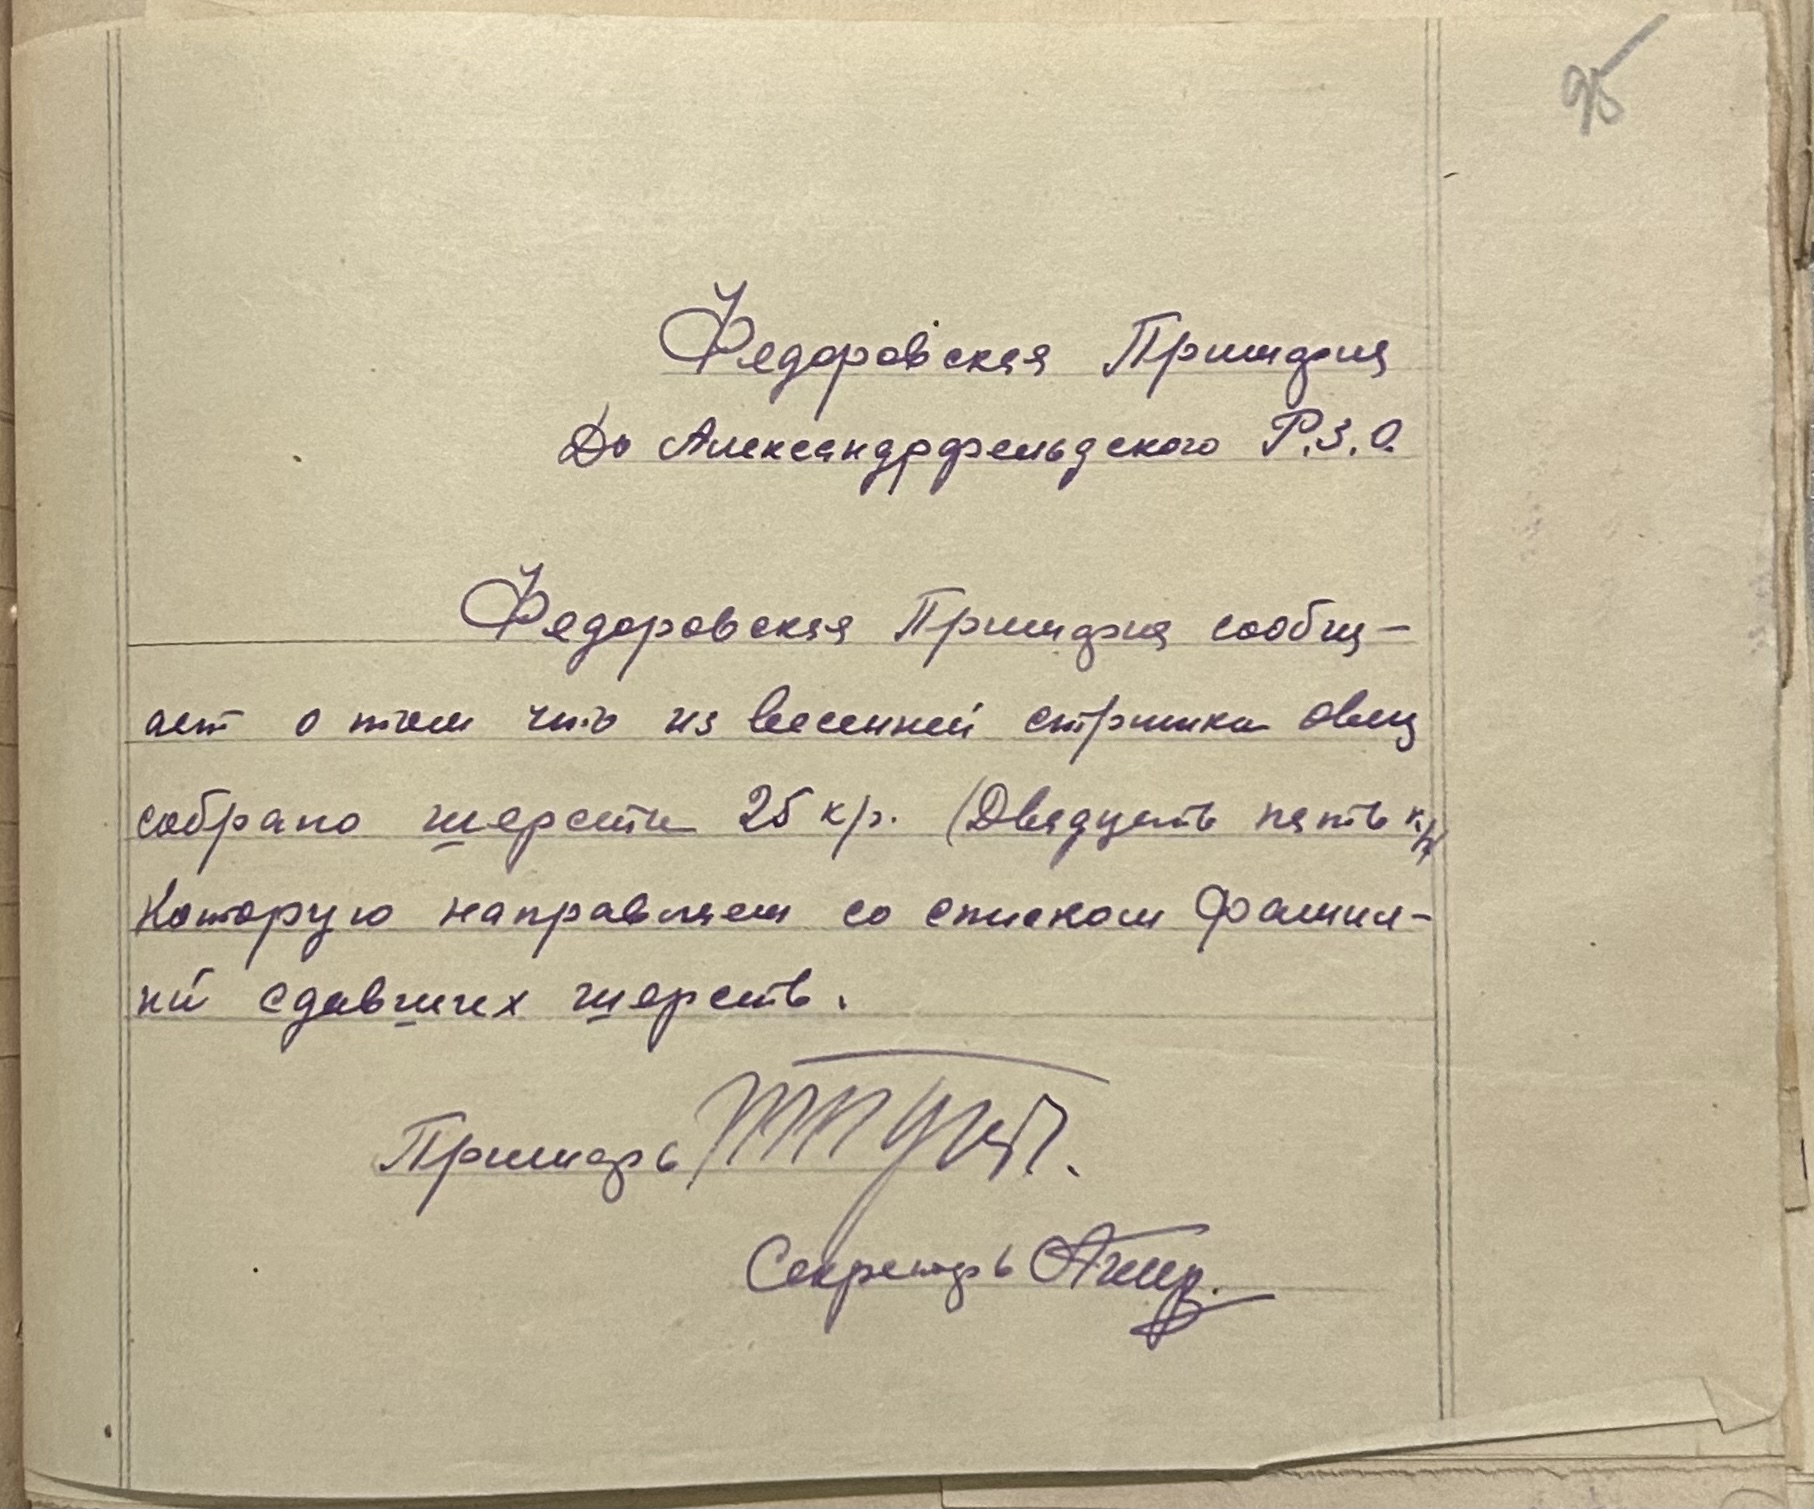 95
Федоровская Примария
До Александрфельдского Р.З.О.
Федоровская Примария сообщ-
ает о том что из весенней стрижки овец
собрано шерсти 25 кгр. (Двадцать пять кгр
Которую направляем со списком Фамил-
ий сдавших шерсть.
Примарь
Секретарь